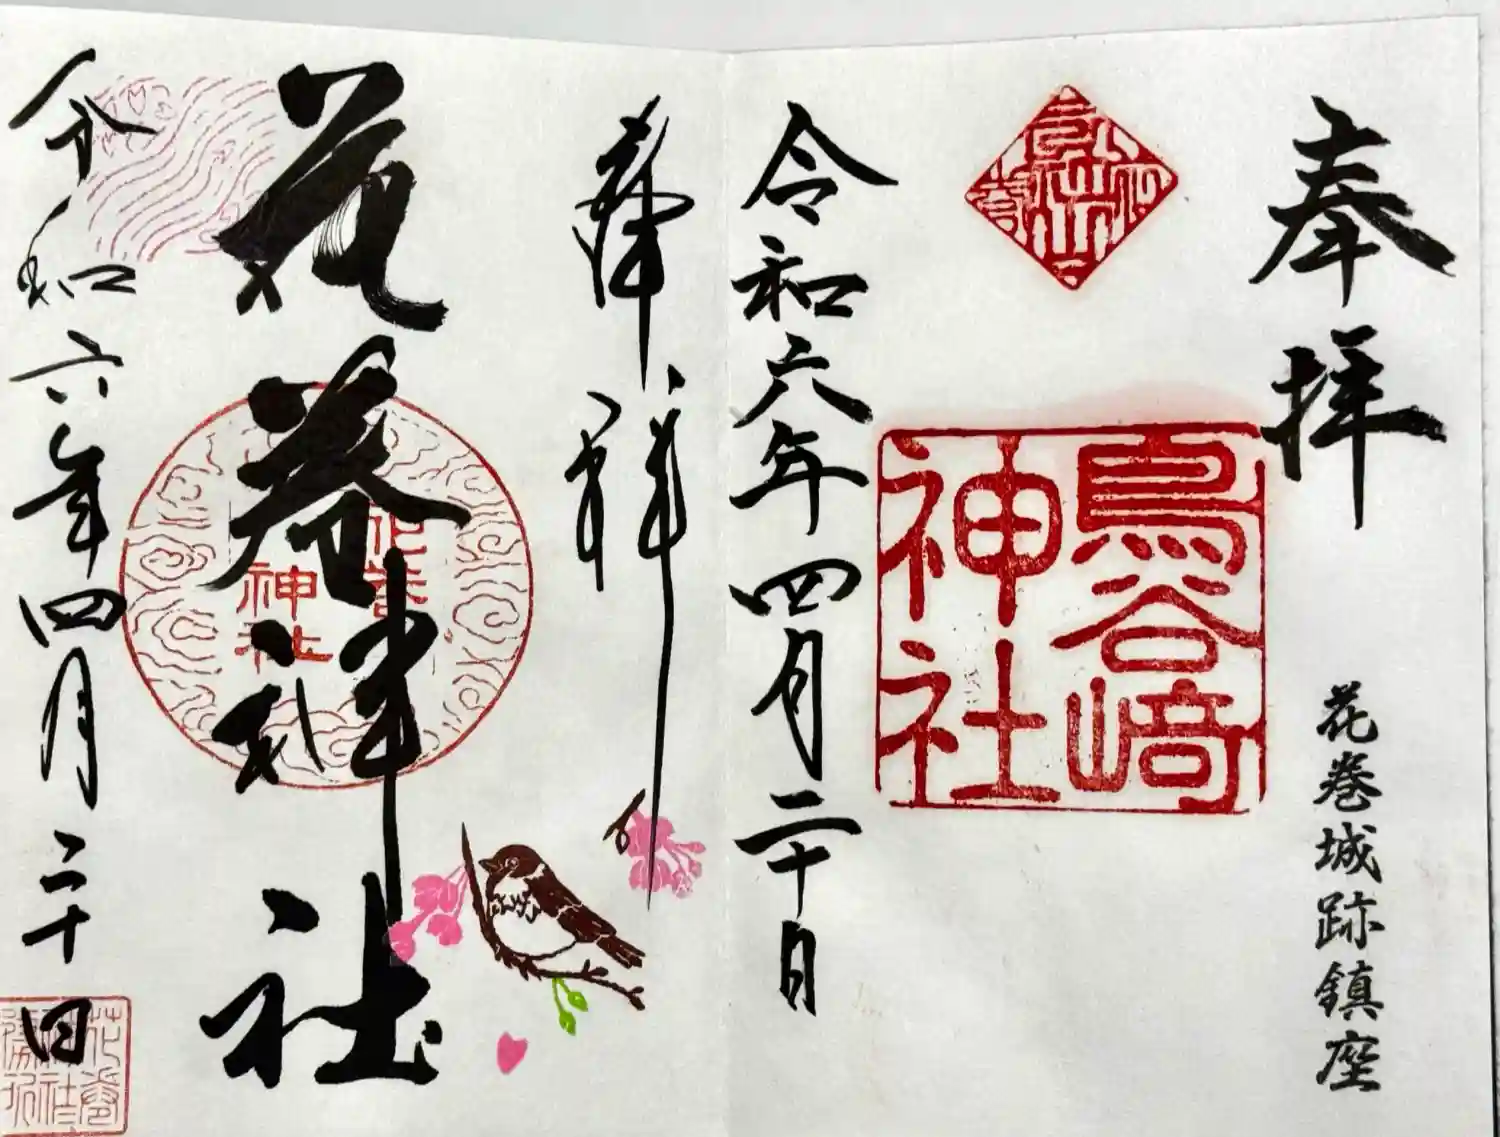 奉拝
花巻城跡鎮座
鳥谷崎
神社
令和六年四月二十日
奉拝
花巻神社
花巻
神社
令和六年四月二十日